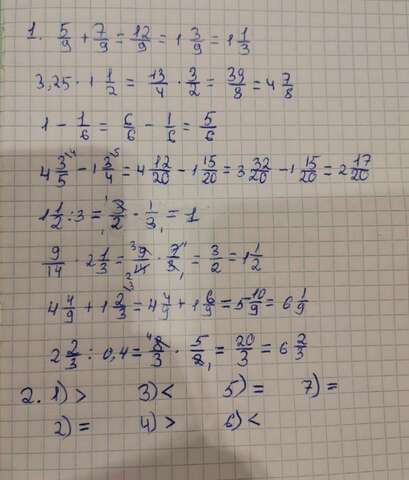 1. 5/9 + 7/9 = 12/9 = 1 3/9 = 1 1/3
3,25 · 1 1/2 = 13/4 · 3/2 = 39/8 = 4 7/8
1 − 1/6 = 6/6 − 1/6 = 5/6
4 3/5 − 1 3/4 = 4 12/20 − 1 15/20 = 3 32/20 − 1 15/20 = 2 17/20
1 1/2 : 3 = 3/2 · 1/3 = 1
9/14 · 2 1/3 = 9/14 · 7/3 = 3/2 = 1 1/2
4 4/9 + 1 2/3 = 4 4/9 + 1 6/9 = 5 10/9 = 6 1/9
2 2/3 : 0,4 = 8/3 · 5/2 = 20/3 = 6 2/3
2. 1) > 3) < 5) = 7) =
2) = 4) > 6) <